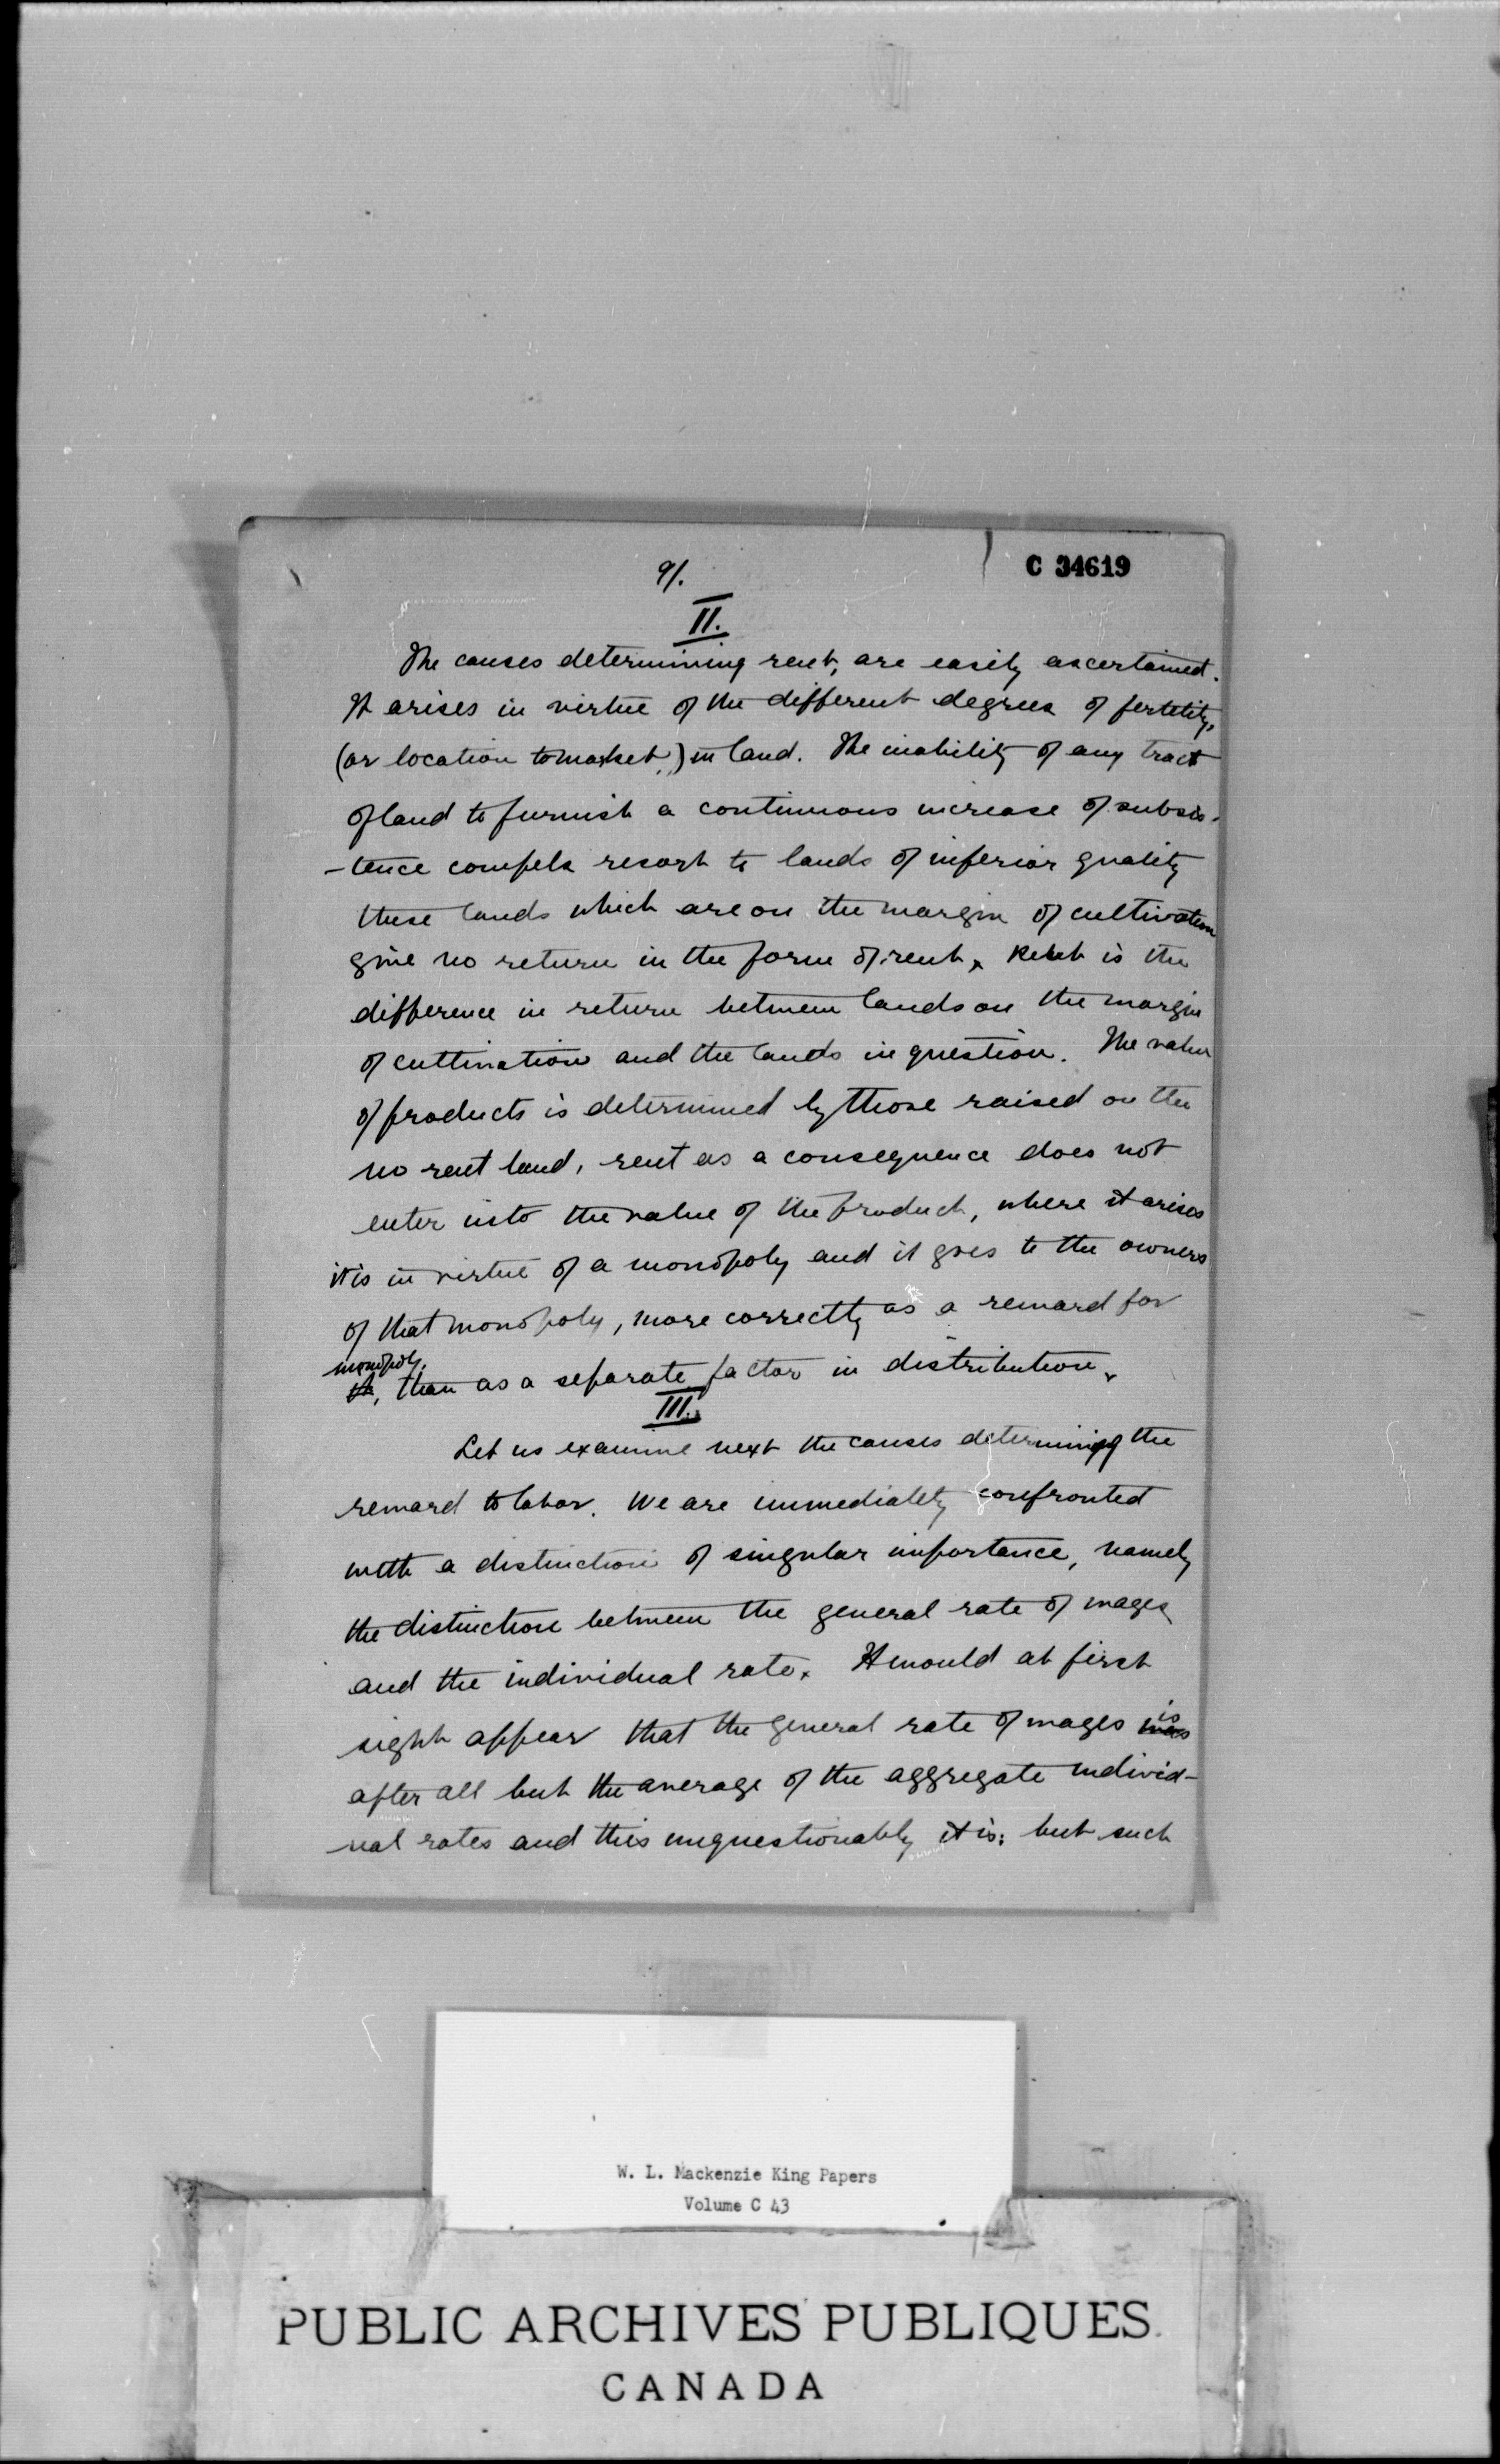 9/.
C 34619
II.
The causes determining rent, are easily ascertained.
It arises in virtue of the different degrees of fertility,
(or location to market,) in land. The inability of any tract
of land to furnish a continuous increase of subsis-
-tence compels resort to lands of inferior quality
these lands which are on the margin of cultivation
give no return in the form of rent. Rent is the
difference in return between lands on the margin
of cultivation and the lands in question. The value
of products is determined by those raised on the
no rent land, rent as a consequence does not
enter into the value of the product, where it arises
it is in virtue of a monopoly and it goes to the owners
of that monopoly, more correctly as a reward for
monopoly.
it, than as a separate factor in distribution.
III.
Let us examine next the causes determining the
reward to labor. We are immediately confronted
with a distinction of singular importance, namely
the distinction between the general rate of wages
and the individual rate. It would at first
sight appear that the general rate of wages was is
after all but the average of the aggregate individ-
ual rates and this unquestionably it is; but such
W. L. Mackenzie King Papers
Volume C 43
PUBLIC ARCHIVES PUBLIQUES
CANADA